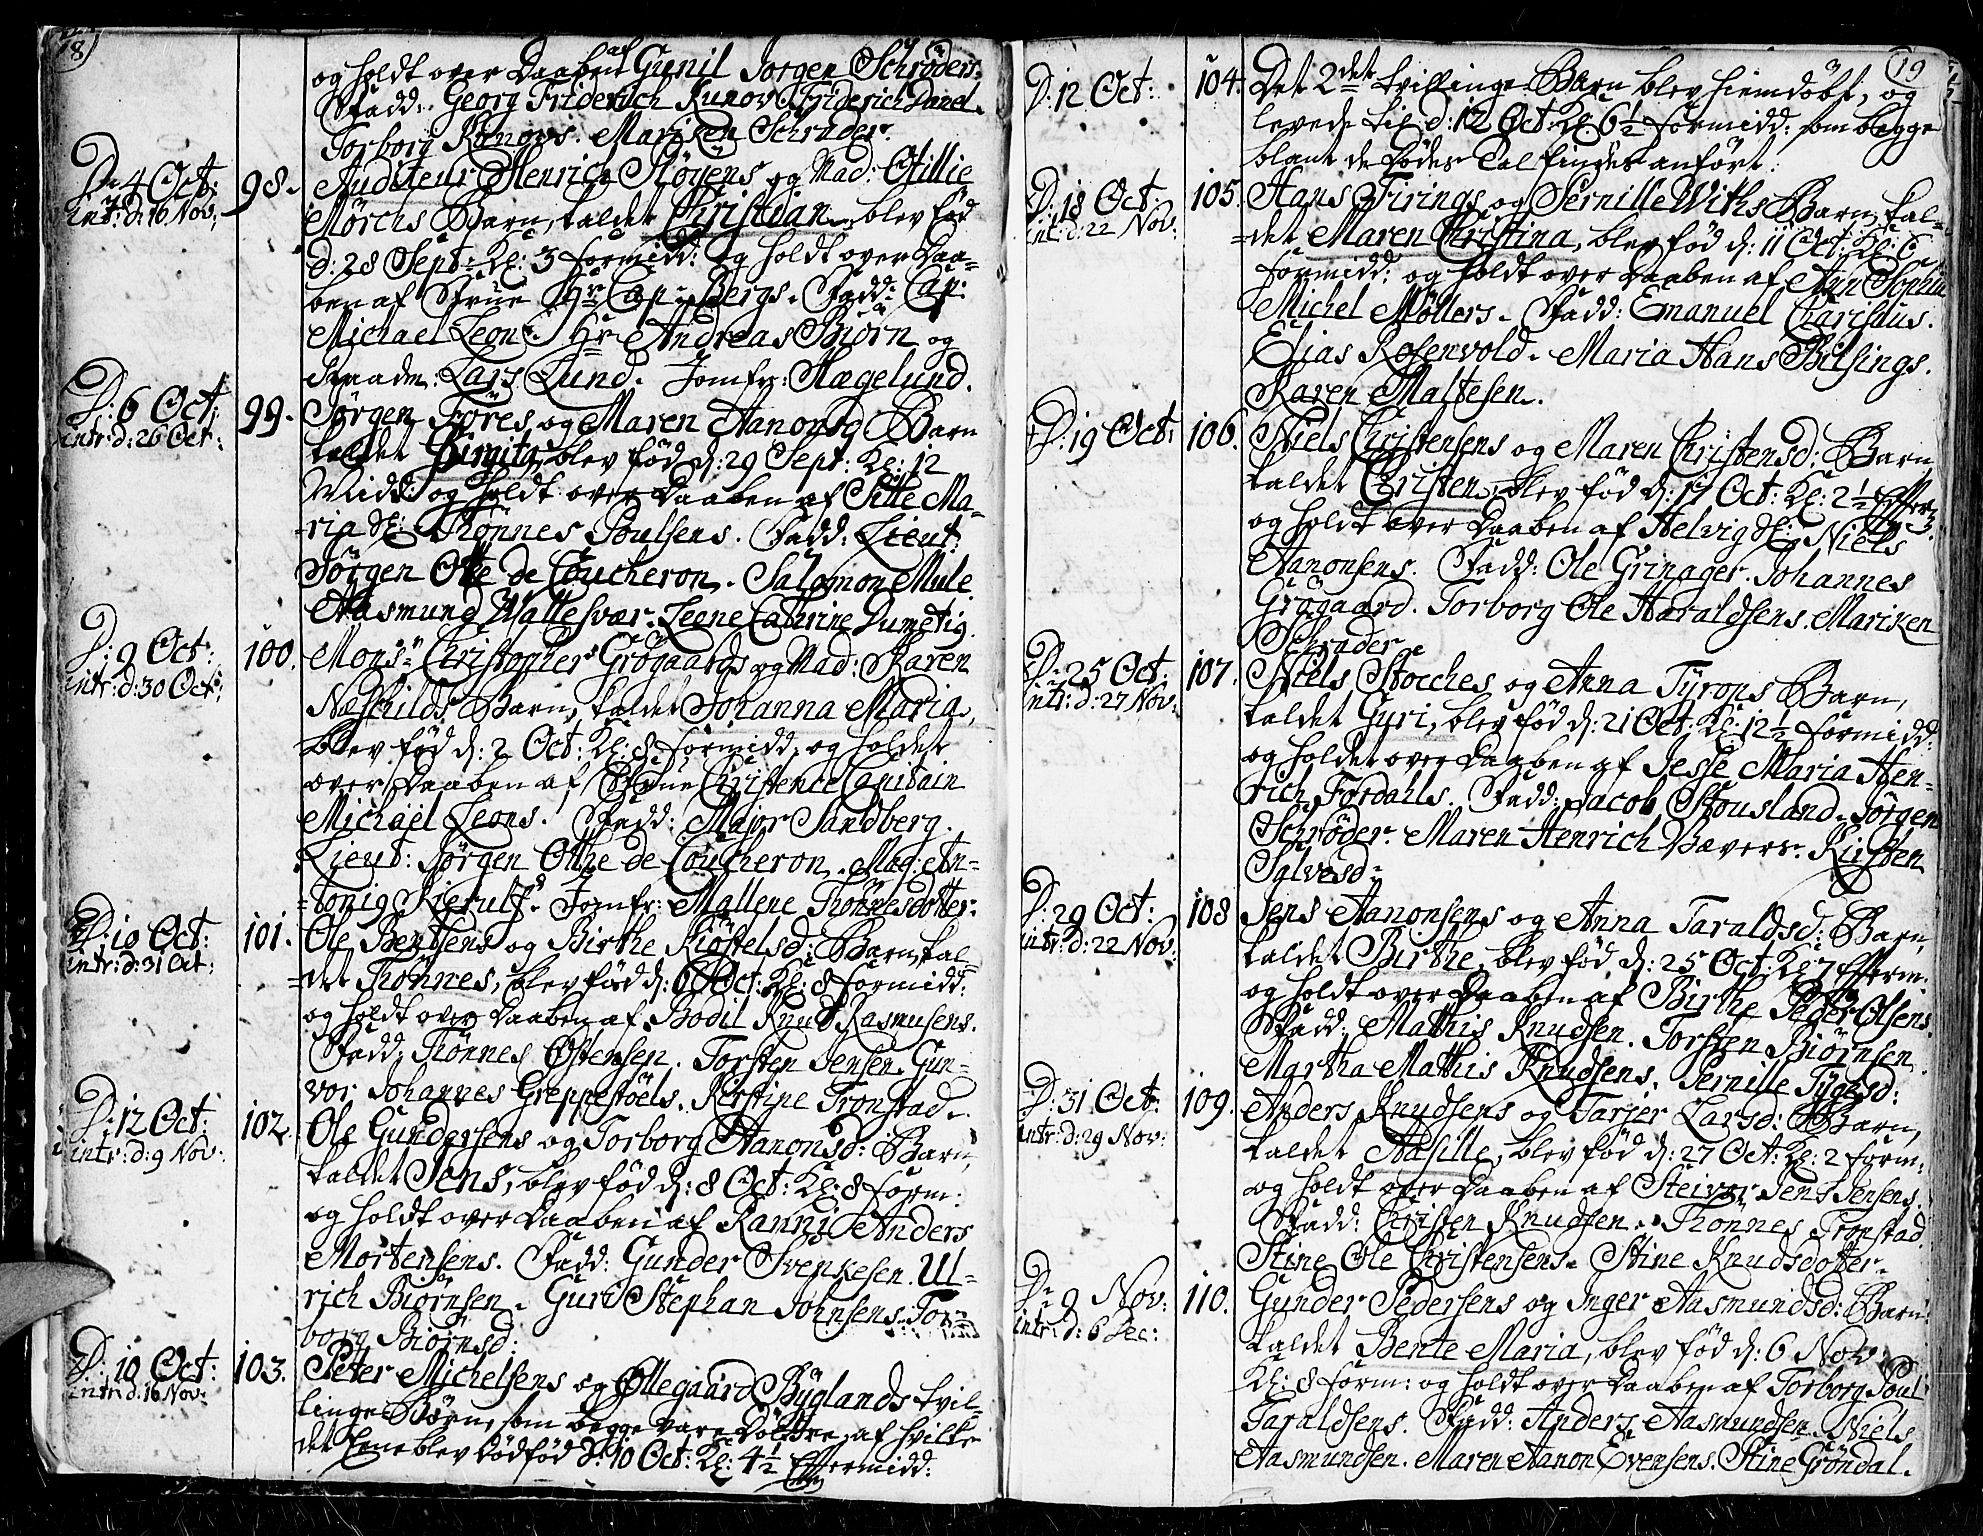 18)
og holdt over Daaben af Gunil Jörgen Schröders.
Fadd: Georg Friderich Kunov. Friderich Danel.
Torborg Kunovs. Mariken Schrader.
D: 4 Oct: 98. Auditeur Henrich Nöyens og Mad: Ofillie
intr: d: 16 Nov: Mörchs Barn, kaldet Christian, blev fød
d: 28 Sept: Kl: 3 formidd: og holdt over Daa=
ben af Frue Hr Cap: Bergs. Fadd: Cap:
Michael Leon. Hr Andreas Biörn og
Lars Lund. Jomfr: Hægelund.
D: 6 Oct: 99. Jörgen Föres og Maren Aanonsd Barn
intr: d: 26 Oct: kaldet Birgita, blev fød d: 29 Sept: Kl: 12
Midd: og holdt over Daaben af Sille Ma=
=ria Sl: Thönnes Poulsens. Fadd: Lieut:
Jörgen Otte de Coucheron. Salomon Mule.
Aasmund Mallesvær. Leene Cathrine Dumetig.
D: 9 Oct: 100. Monsr Christopher Grögaards og Mad: Karen
intr: d: 30 Oct: Næschilds Barn, kaldet Johanna Maria,
blev fød d: 2 Oct: Kl: 8 formidd. og holdet
over Daaben af Frue Christence Capitain
Michaël Leons. Fadd: Major Sandberg.
Lieut: Jörgen Otthe de Coucheron. Mag: An=
=tonig Kierulf. Jomfr: Mallene Thönnesdotter.
D: 10 Oct: 101. Ole Bentsens og Birthe Kiöstelsd: Barn, kal=
intr: d: 31 Oct: =det Thönnes, blev fød d: 6 Oct: Kl: 8 formidd:
og holdt over Daaben af Bodil Knud Rasmusens.
Fadd: Thönnes Östensen. Torsten Jensen. Gun=
vor Johannes Greppestöels. Kirstine Tronstad.
D: 12 Oct: 102. Ole Gundersens og Torborg Aanonsd: Barn,
intr: d: 9 Nov: kaldet Jens, blev fød d: 8 Oct: Kl: 8 form:
og holdt over Daaben af Ranni Anders
Mortensens. Fadd: Gunder Svenkesen. Ul=
rich Biörnsen. Guri Stephan Johnsens. Tor=
borg Biörnsd:
D: 10 Oct: 103. Peter Michelsens og Ollegaard Byglands tvil=
intr: d: 16 Nov: linge Börn, som begge vare Döttre, af hvilke
det Eene blev Dødfød d: 10 Oct: Kl: 4½ Eftermidd:
19
D: 12 Oct: 104. Det 2det tvillinge Barn blev hiemdöbt, og
levede til d: 12 Oct: Kl: 6½ formidd: som begge
blant de Dødes Tal findes anført.
D: 18 Oct: 105. Hans Firings og Pernille Withs Barn, kal=
intr: d: 22 Nov: =det Maren Christina, blev fød d: 11 Oct: Kl: 6
formidd: og holdt over Daaben af Ann Sophia
Michel Möllers. Fadd: Emanuel Charisius.
Elias Rosenvold. Maria Hans Bilsings.
Karen Maltesen.
D: 19 Oct: 106. Niels Christensens og Maren Christensd: Barn
kaldet Christen, blev fød d: 17 Oct: Kl: 2½ Efterm:
og holdt over Daaben af Helvig Sl: Niels
Aanonsens. Fadd: Ole Grinager. Johannes
Grögaard. Torborg Ole Haraldsens. Mariken
Schrader.
D: 25 Oct: 107. Niels Stocches og Anna Tyrons Barn,
intr: d: 27 Nov: kaldet Gyri, blev fød d: 21 Oct: Kl: 12½ formidd:
og holdet over Daaben af Jesse Maria Hen=
rich Fordahls. Fadd: Jacob Skousland. Jörgen
Schröder. Maren Henrich Bævers. Kirsten
Salvesd:
D: 29 Oct: 108 Jens Aanonsens og Anna Taraldsd: Barn,
intr: d: 22 Nov: kaldet Birthe, blev fød d: 25 Oct: Kl: 7 Efterm:
og holdt over Daaben af Birthe Peder Olsens.
Fadd: Mathis Knudsen. Torsten Biörnsen
Martha Mathis Knudsens. Pernille Tygesd:
D: 31 Oct: 109. Anders Knudsens og Tarjer Larsd: Barn,
intr: d: 29 Nov: kaldet Aasille, blev fød d: 27 Oct: Kl: 2 form:
og holdt over Daaben af Steivor Jens Jensens.
Fadd: Christen Knudsen. Thönnes Tronstad.
Stine Ole Christensens. Stine Knudsdotter.
D: 9 Nov: 110. Gunder Pedersens og Inger Aasmundsd: Barn
intr: d: 6 Dec: kaldet Bente Maria, blev fød d: 6 Nov:
Kl: 8 form: og holdt over Daaben af Torborg Poul
Taraldsens. Fadd: Anders Aasmundsen. Niels
Aasmundsen. Maren Aanon Evensens. Stine Gröndal.